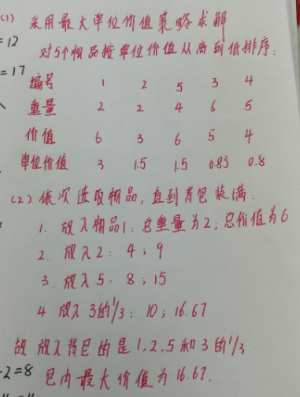 (1) 采用最大单位价值策略求解
=12
对5个物品按单位价值从高到低排序:
=17
编号 1 2 5 3 4
重量 2 2 4 6 5
价值 6 3 6 5 4
单位价值 3 1.5 1.5 0.83 0.8
(2) 依次选取物品,直到背包装满.
1. 放入物品1: 总重量为2; 总价值为6
2. 放入2: 4; 9
3. 放入5: 8; 15
4 放入3的1/3: 10; 16.67
故放入背包的是1,2,5和3的1/3
-2=8
包内最大价值为16.67.